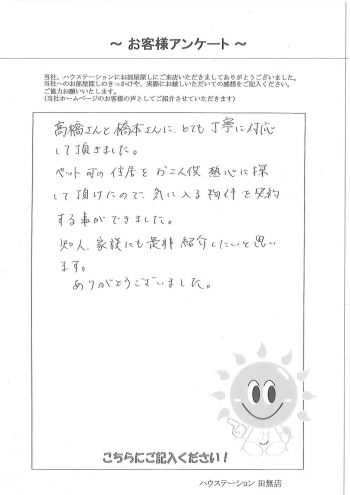 ～ お客様アンケート ～
当社、ハウステーションにお部屋探しにご来店いただきましてありがとうございました。
当社へのお部屋探しのきっかけや、実際にお越しいただいての感想をご記入ください。
ご協力お願いいたします。
(当社ホームページのお客様の声としてご紹介させていただきます)
高橋さんと橋本さんに、とても丁寧に対応
して頂きました。
ペット可の住居をお二人係熱心に探
して頂けたので、気に入る物件を契約
する事ができました。
知人、家族にも是非紹介したいと思い
ます。
ありがとうございました。
こちらにご記入ください!
ハウステーション 田無店